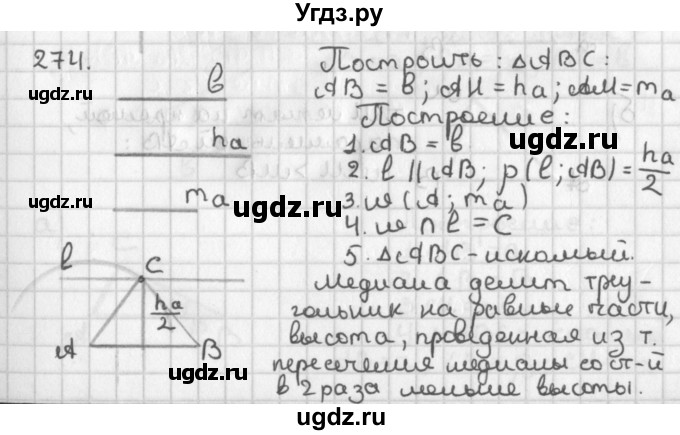 Угдз.ру
274.
b
ugdz.ru
ha
ugdz.ru
ma
ugdz.ru
l
C
ha/2
A
B
ugdz.ru
Построить: △ABC:
AB = b; AH = ha; AM = ma
Построение:
ugdz.ru
1. AB = b
2. l || AB; ρ(l; AB) = ha/2
3. w(A; ma)
4. w ∩ l = C
5. △ABC - искомый.
ugdz.ru
Медиана делит треу-
гольник на равные части,
высота, проведенная из т.
ugdz.ru
пересечения медианы со ст-й
в 2 раза меньше высоты.
ugdz.ru
Угдз.ру